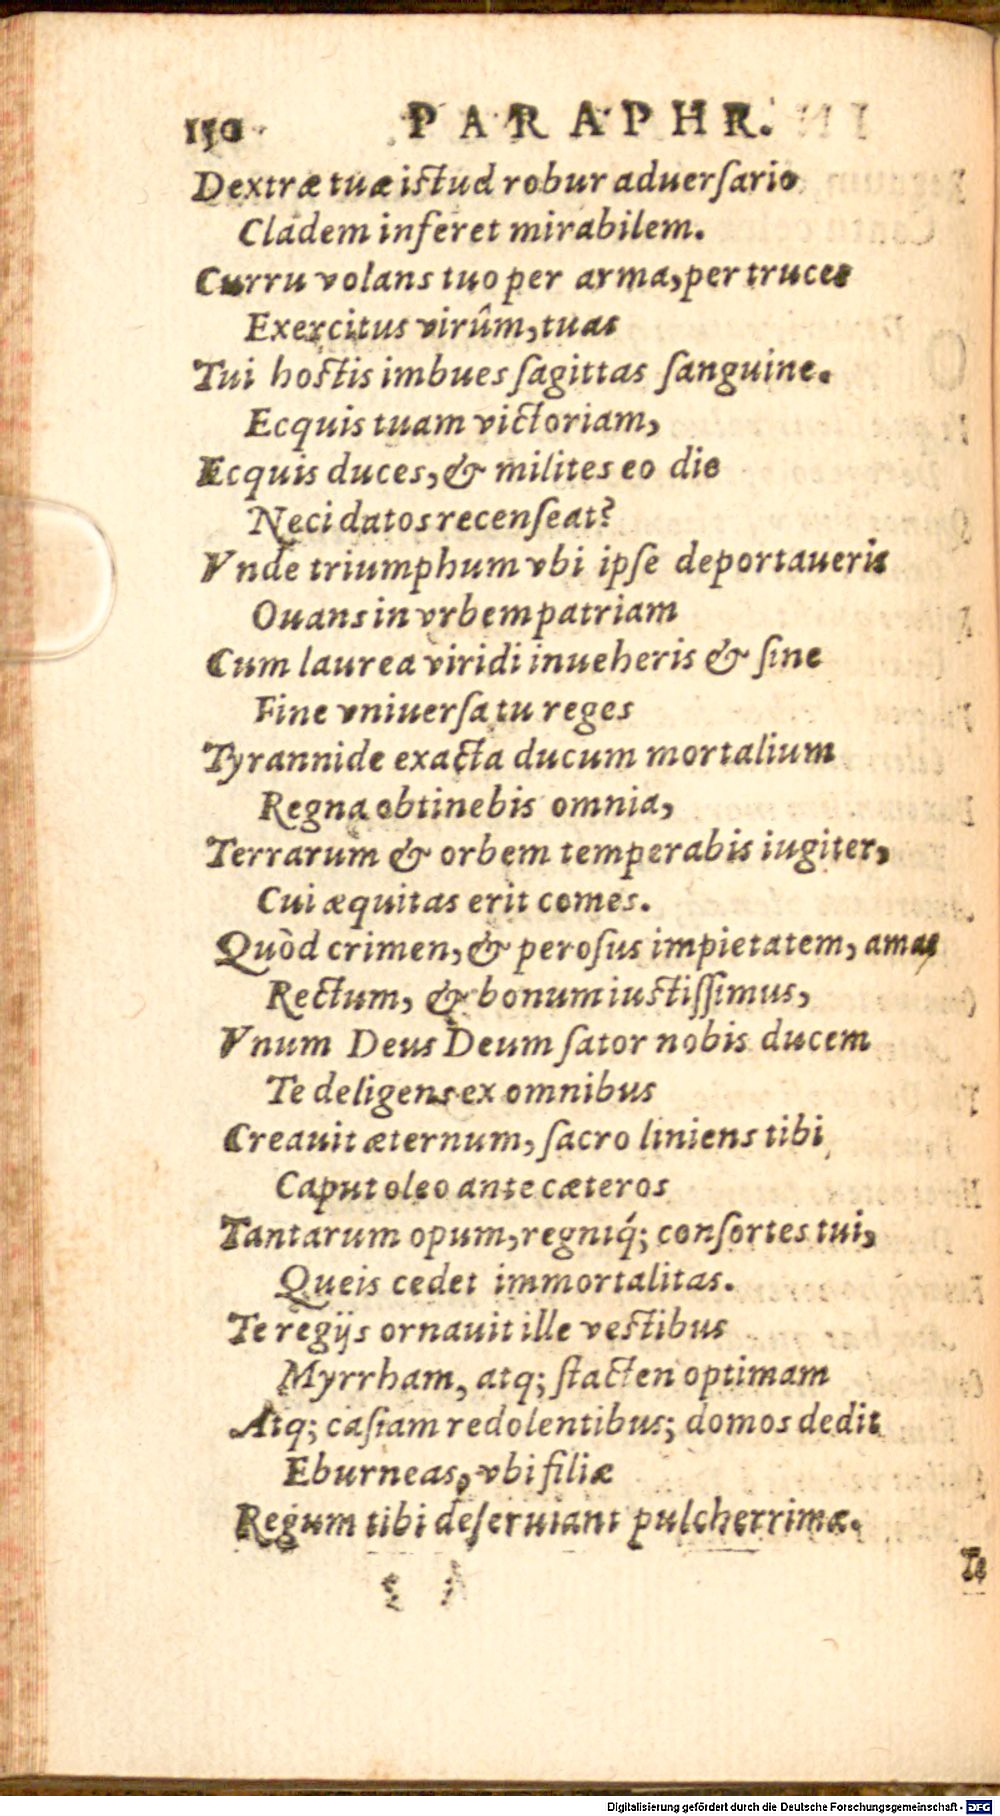 150 PARAPHR.
Dextræ tuæ istud robur aduerſario
Cladem inferet mirabilem.
Curru volans tuo per arma, per truces
Exercitus virûm, tuas
Tui hostis imbues ſagittas ſanguine.
Ecquis tuam victoriam,
Ecquis duces, & milites eo die
Neci datos recenſeat?
Vnde triumphum vbi ipſe deportaueris
Ouans in vrbem patriam
Cum laurea viridi inueheris & ſine
Fine vniuerſa tu reges
Tyrannide exacta ducum mortalium
Regna obtinebis omnia,
Terrarum & orbem temperabis iugiter,
Cui æquitas erit comes.
Quòd crimen, & peroſus impietatem, amas
Rectum, & bonum iustiſſimus,
Vnum Deus Deum ſator nobis ducem
Te deligens ex omnibus
Creauit æternum, ſacro liniens tibi
Caput oleo ante cæteros
Tantarum opum, regniq́; conſortes tui,
Queis cedet immortalitas.
Te regijs ornauit ille vestibus
Myrrham, atq; ſtacten optimam
Atq; caſiam redolentibus; domos dedit
Eburneas, vbi filiæ
Regum tibi deſeruiant pulcherrimæ.
Te
Digitalisierung gefördert durch die Deutsche Forschungsgemeinschaft - DFG